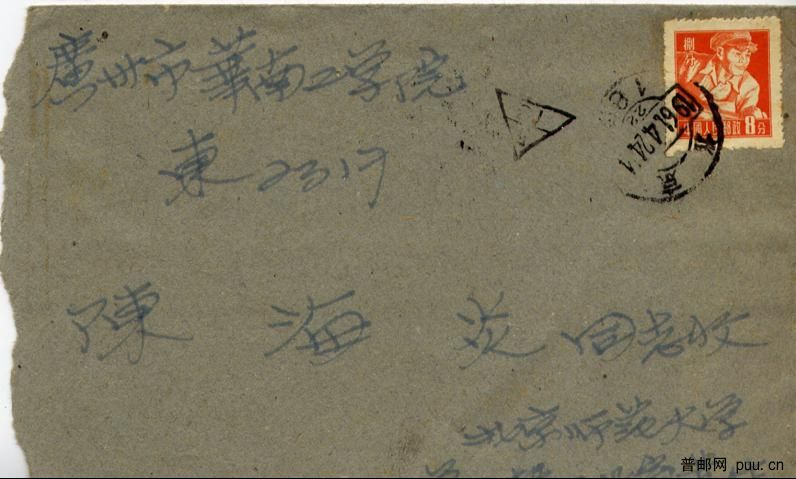 廣州市華南工学院
東2317
陳海炎同志收
北京师范大学
捌分
中國人民郵政8分
1961.4.24
北京
普邮网 puu.cn